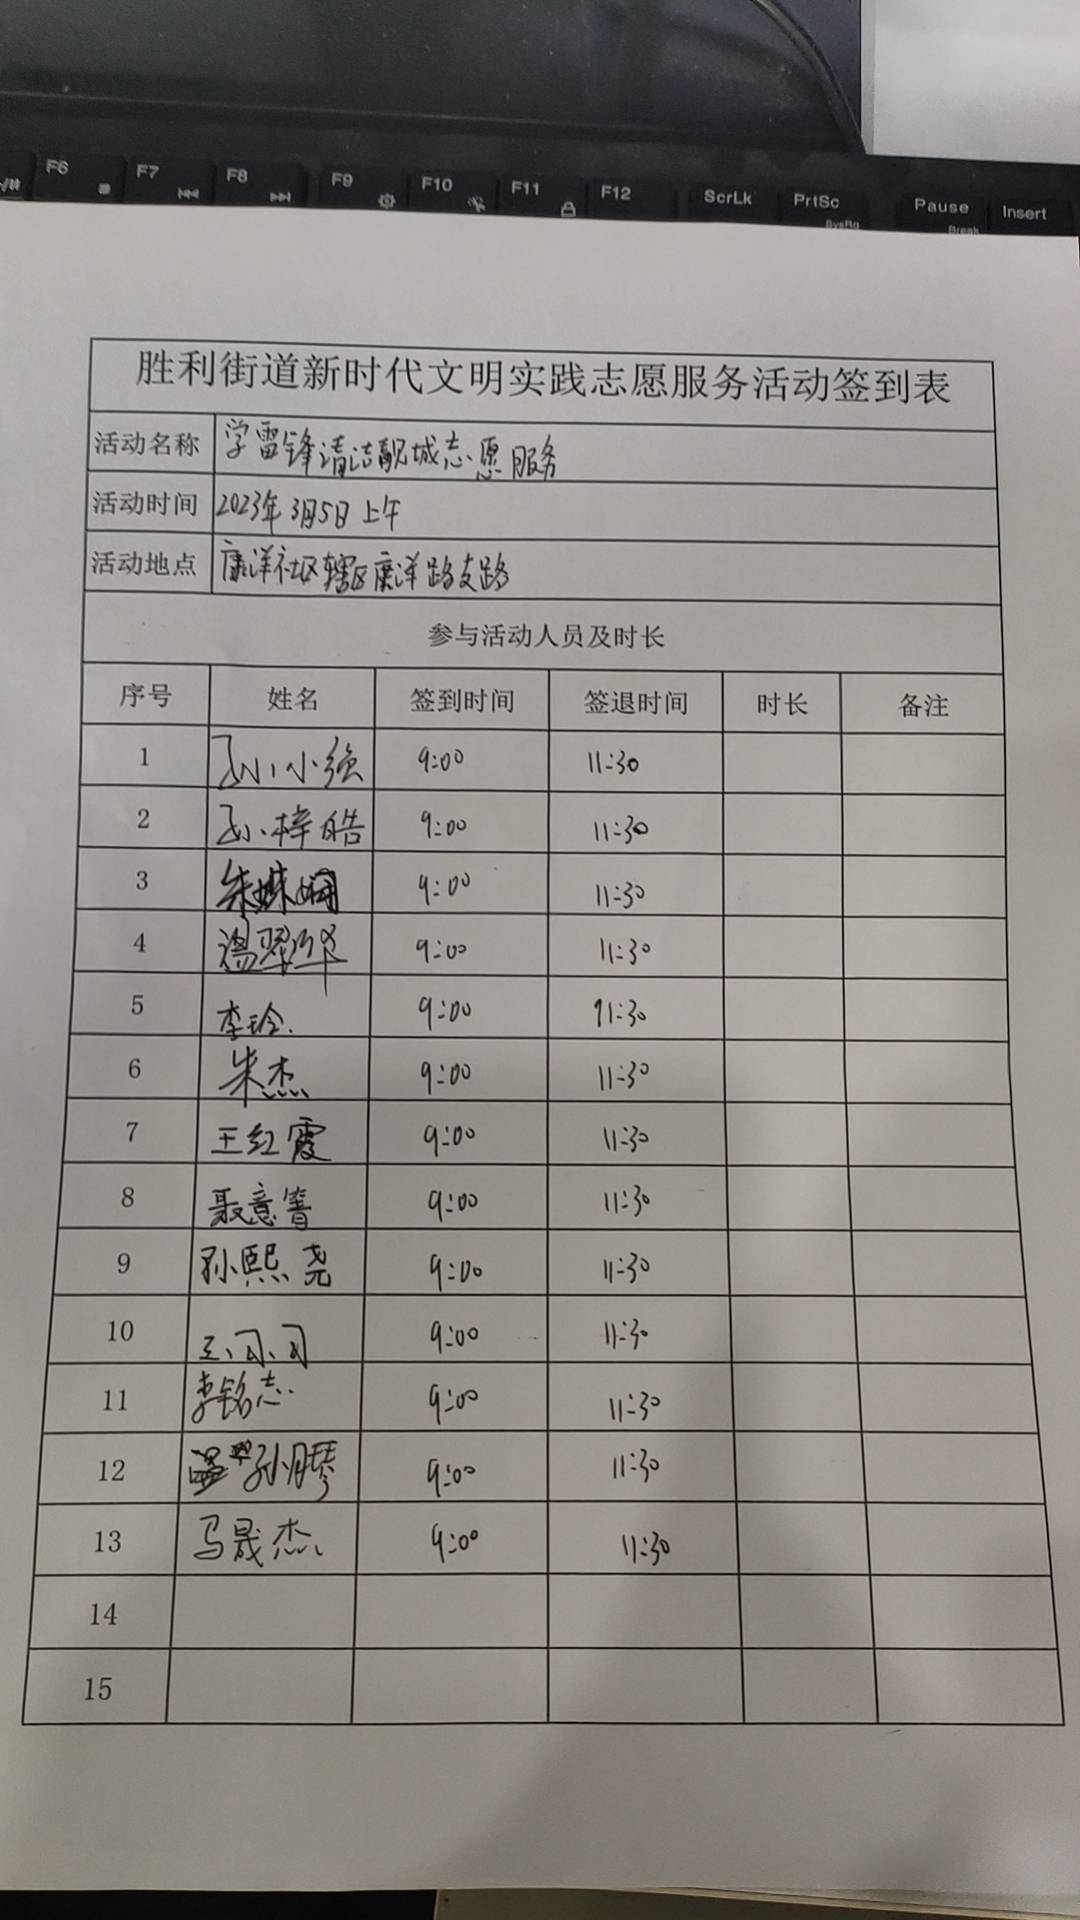 F6 F7 F8 F9 F10 F11 F12 ScrLk PrtSc Pause Insert
SysRq Break
胜利街道新时代文明实践志愿服务活动签到表
活动名称 学雷锋清洁靓城志愿服务
活动时间 2023年3月5日上午
活动地点 康洋社区辖区康洋路支路
参与活动人员及时长
序号 姓名 签到时间 签退时间 时长 备注
1 孙小强 9:00 11:30
2 孙梓皓 9:00 11:30
3 朱姝娴 9:00 11:30
4 9:00 11:30
5 李玲 9:00 11:30
6 朱杰 9:00 11:30
7 王红霞 9:00 11:30
8 聂意箐 9:00 11:30
9 孙熙尧 9:00 11:30
10 9:00 11:30
11 李铭志 9:00 11:30
12 9:00 11:30
13 马晟杰 9:00 11:30
14
15